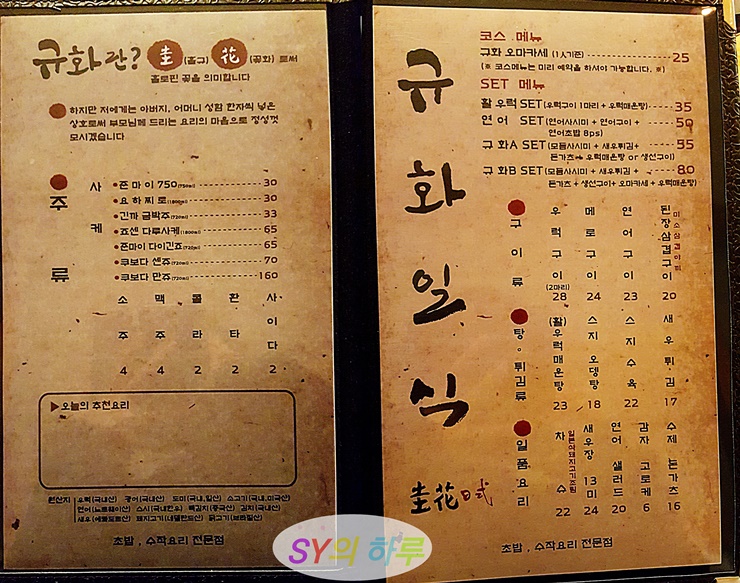 규화란? 圭(홀규) 花(꽃화) 로써
홀로핀 꽃을 의미합니다
하지만 저에게는 아버지, 어머니 성함 한자씩 넣은
상호로써 부모님께 드리는 요리의 마음으로 정성껏
모시겠습니다
주류
사케
준마이750(750ml) 30
요하찌로(1800ml) 30
긴까 금박주(720ml) 33
죠센 다루사케(1800ml) 65
준마이 다이긴죠(720ml) 65
쿠보다 센쥬(720ml) 70
쿠보다 만쥬(720ml) 160
소주 4
맥주 4
콜라 2
환타 2
사이다 2
▶오늘의 추천요리
원산지 우럭(국내산) 광어(국내산) 도미(국내,일산) 소고기(국내,미국산)
연어(노르웨이산) 스시(국내한우) 김치(국내산)
돼지고기(네델란드산) 닭고기(브라질산)
초밥 , 수작요리 전문점
규화일식
圭花日式
코스 메뉴
규화 오마카세 (1人기준) 25
(※ 코스메뉴는 미리 예약을 하셔야 가능합니다. ※)
SET 메뉴
활 우럭 SET(우럭구이 1마리 + 우럭매운탕) 35
연어 SET(연어사시미 + 연어구이 + 50
연어초밥 8ps)
규화A SET(모듬사시미 + 새우튀김 + 55
돈가츠 + 우럭매운탕 or 생선구이)
규화B SET(모듬사시미 + 새우튀김 + 80
돈가츠 + 생선구이 + 오마카세 + 우럭매운탕)
구이류
우럭구이(2마리) 28
메로구이 24
연어구이 23
된장삼겹구이 20
미소삼겹야끼
탕·튀김류
(활)우럭매운탕 23
스지오뎅탕 18
스지수육 22
새우튀김 17
일품요리
차슈 22
일본식돼지고기조림
새우장 13미 24
연어샐러드 20
감자고로케 6
수제돈가츠 16
초밥 , 수작요리 전문점
SY의 하루